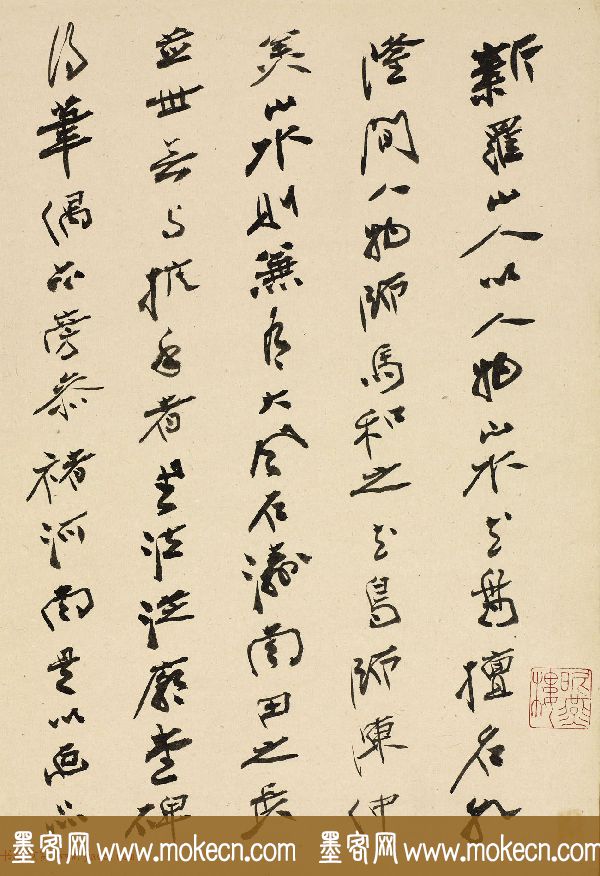 新羅山人以人物山水花鳥擅名乾
隆間人物師馬和之花鳥師陳仲
美山水則兼有大風石濤南田之長
並世無與抗手者書法從廟堂碑
得筆偶亦旁參褚河南是以画
燕樓
墨客网 www.mokecn.com 墨客网 www.mokecn.com